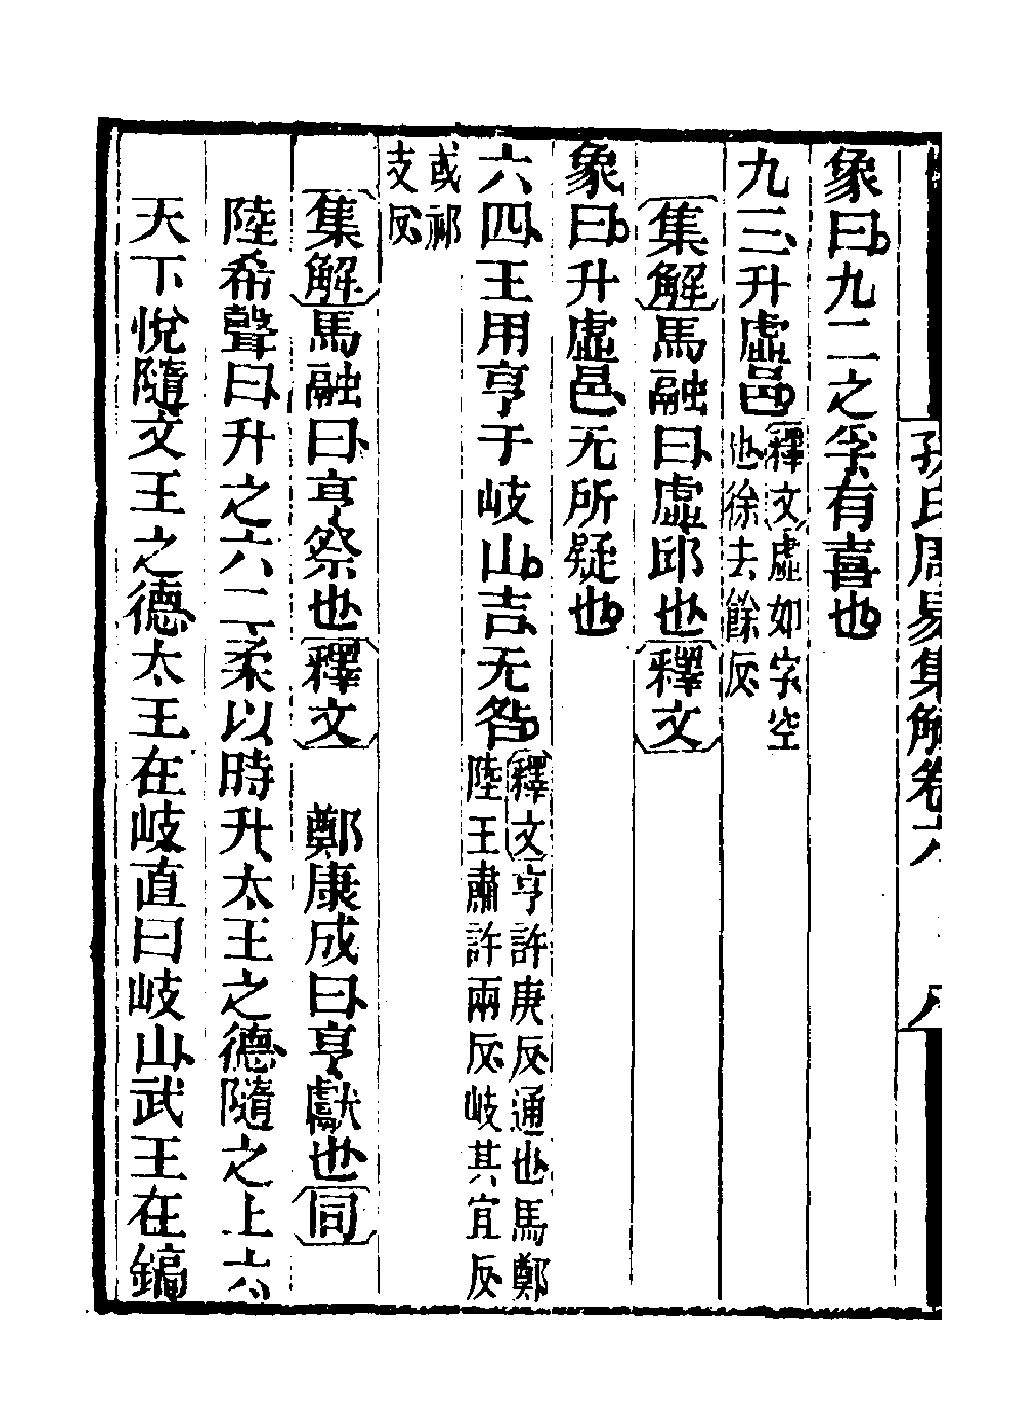 孫氏周易集解卷六
象曰九二之孚有喜也
九三升虛邑釋文虛如字空
也徐去餘反
集解馬融曰虛邱也釋文
象曰升虛邑无所疑也
六四王用亨于岐山吉无咎釋文亨許庚反通也馬鄭
陸王肅許兩反岐其宜反
或祁
支反
集解馬融曰亨祭也釋文 鄭康成曰亨獻也同
陸希聲曰升之六二柔以時升太王之德隨之上六
天下悅隨文王之德太王在岐直曰岐山武王在鎬